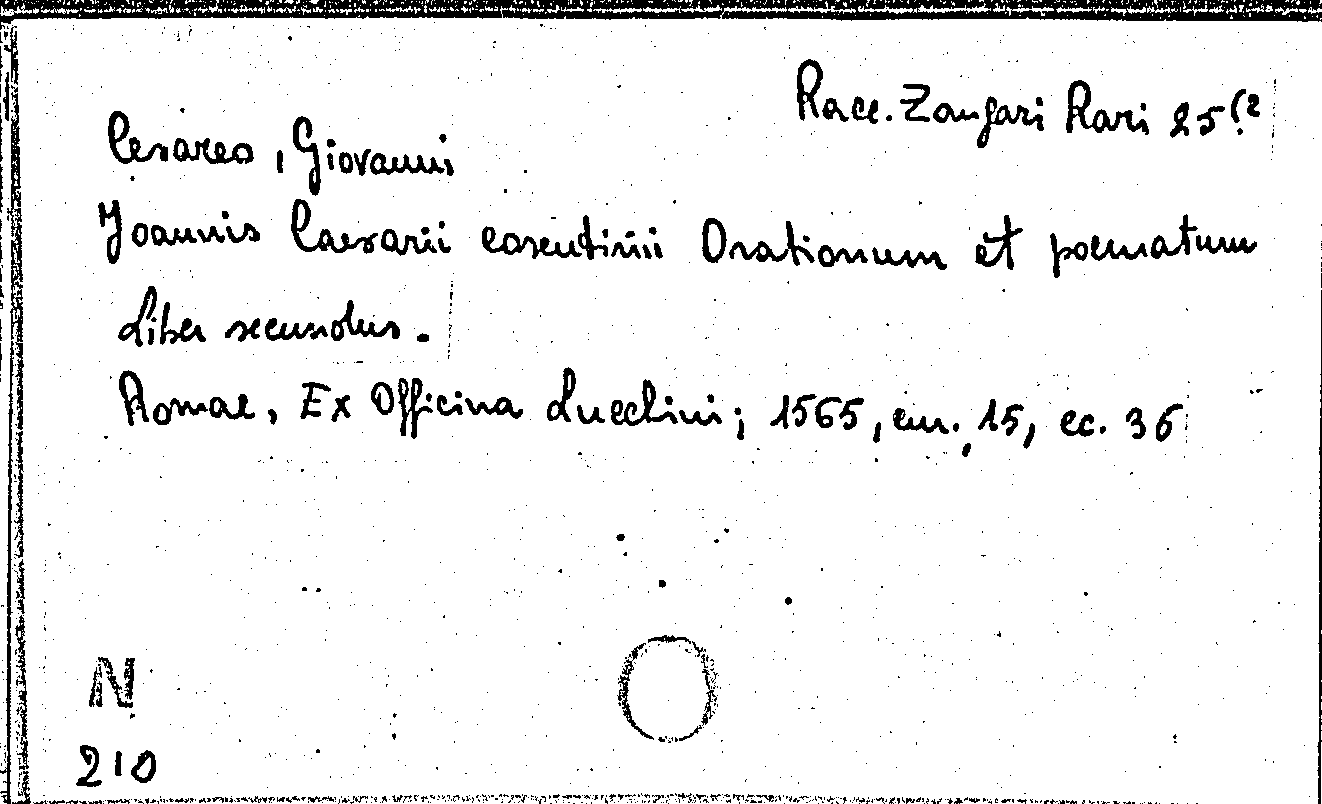 Racc. Zangari Rari 25(2
Cesareo, Giovanni
Joannis Caesarii cosentinii Orationum et poematum
Liber secundus.
Romae, Ex Officina Lucchini; 1565, cm. 15, cc. 36
N
210